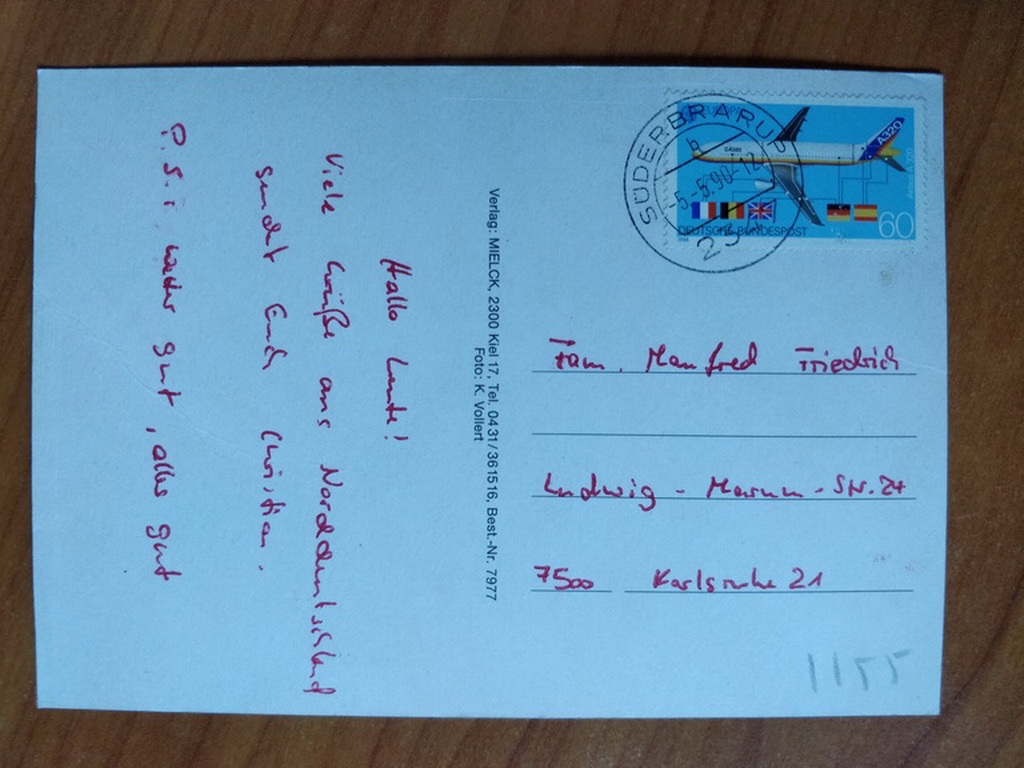 Hallo Leute!
Viele Grüße aus Norddeutschland
sendet Euch Christian.
P.S.: wetter gut, alles gut
Verlag: MIELCK, 2300 Kiel 17, Tel. 04 31 / 36 15 16, Best.-Nr. 7977
Foto: K. Vollert
SÜDERBRARUP
-5.-5.90-12
b
A320
DEUTSCHE BUNDESPOST
60
Fam. Manfred Friedrich
Ludwig-Marum-Str. 24
7500 Karlsruhe 21
1155